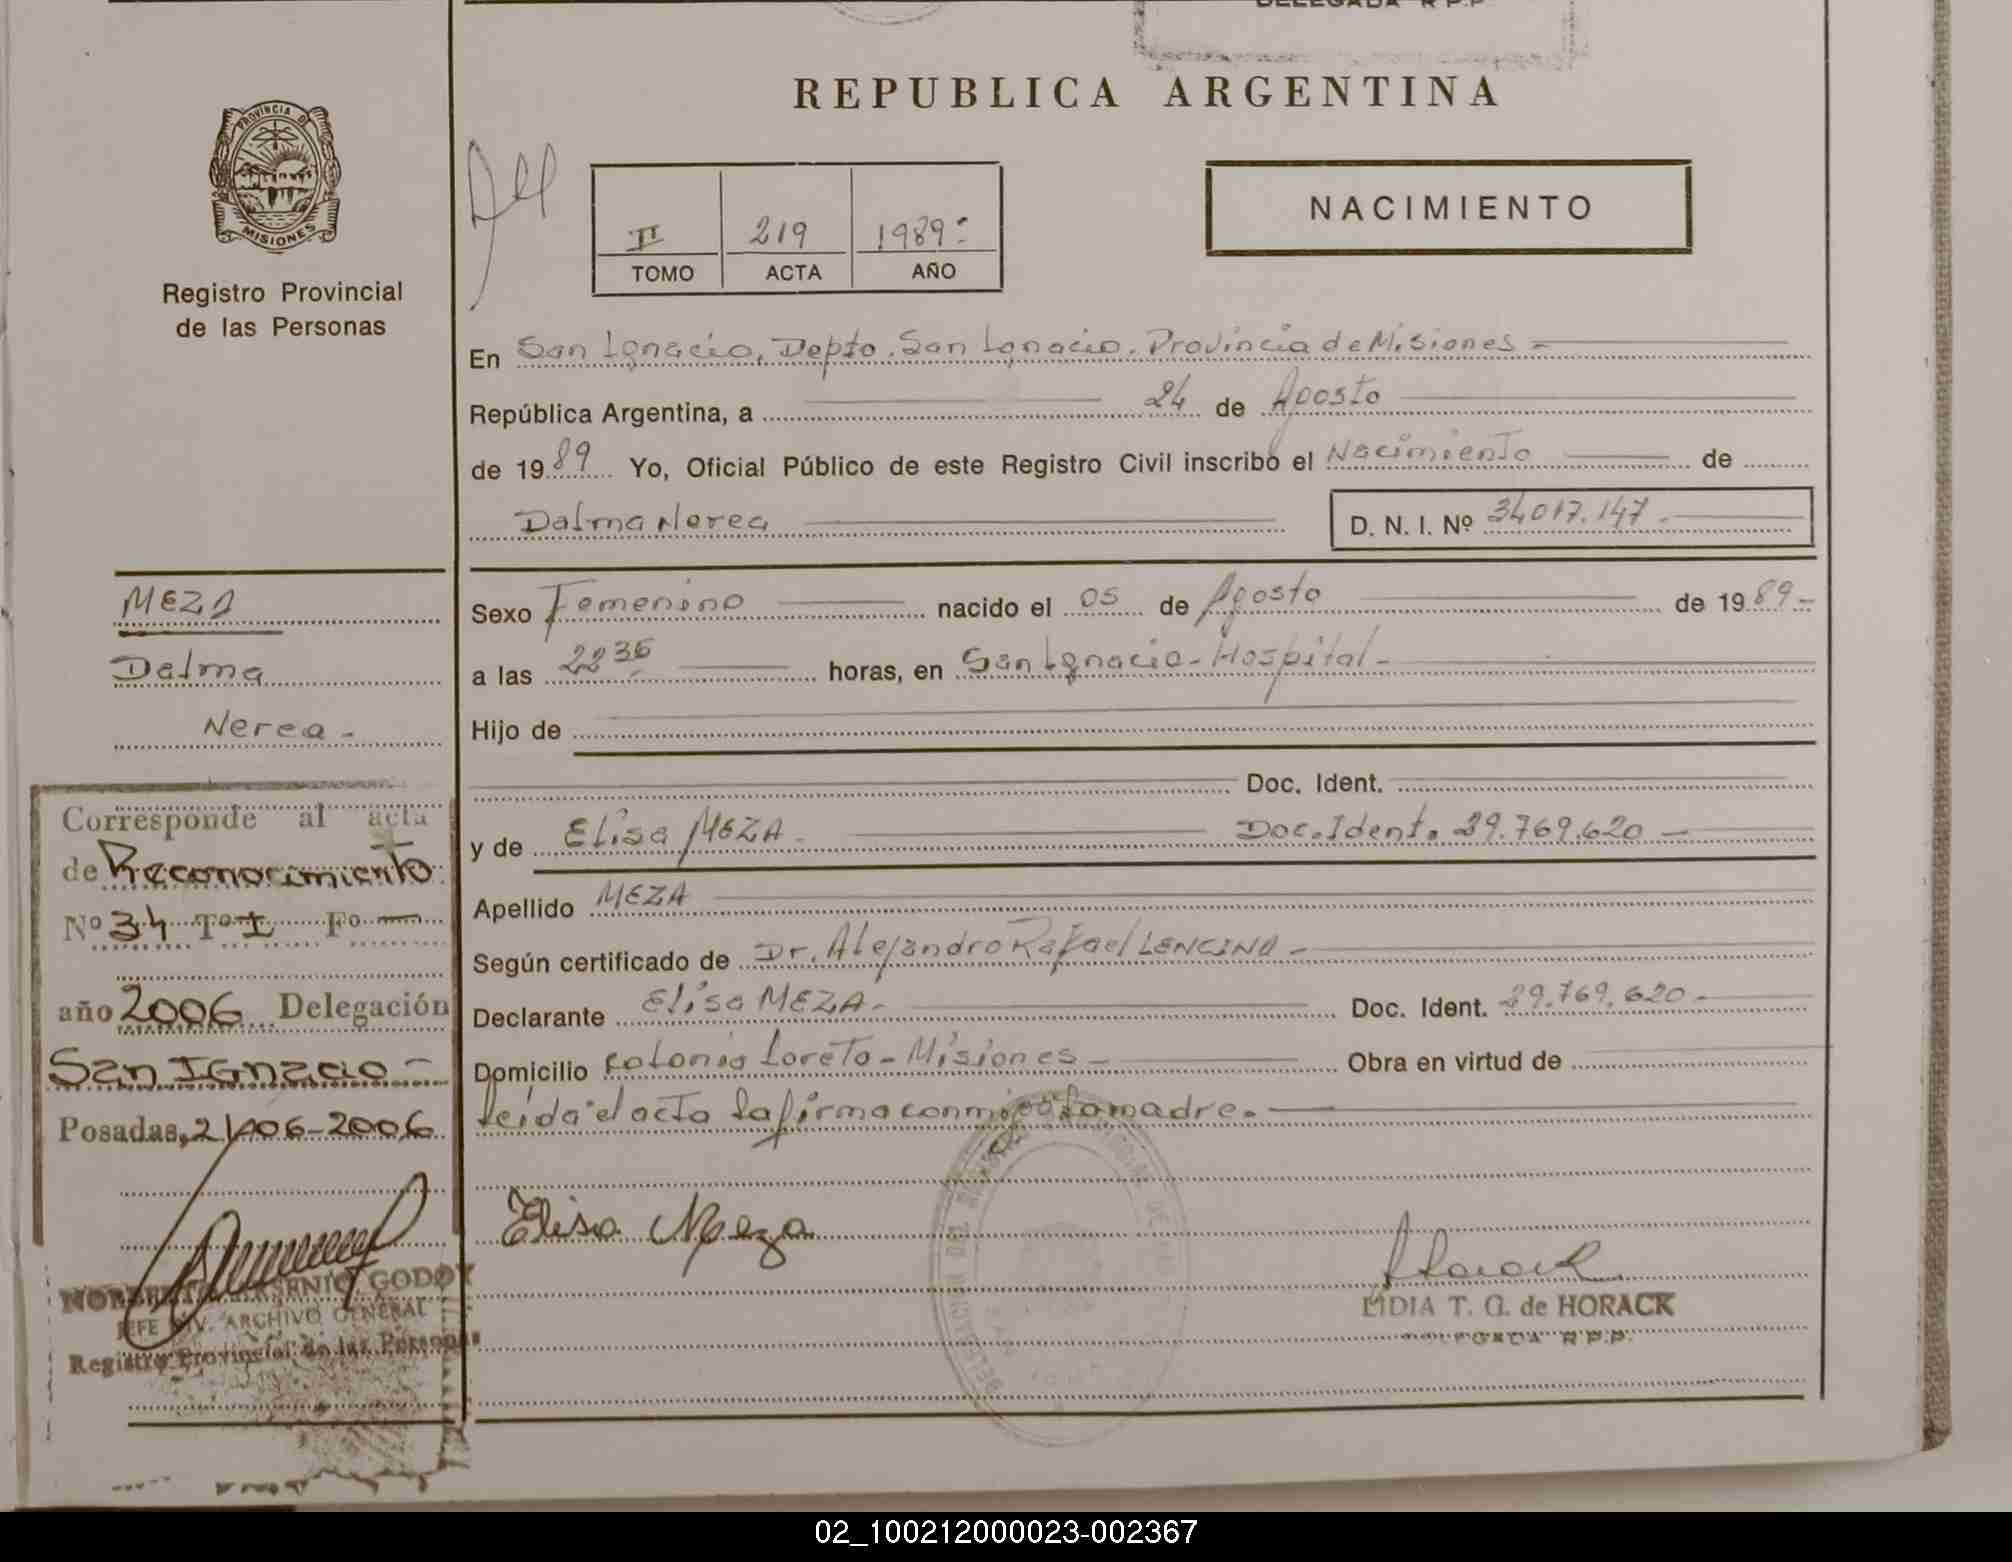 DELEGADA R.P.P
PROVINCIA DE
MISIONES
Registro Provincial
de las Personas
REPUBLICA ARGENTINA
II 219 1989
TOMO ACTA AÑO
NACIMIENTO
En San Ignacio, Depto. San Ignacio. Provincia de Misiones -
República Argentina, a 24 de Agosto
de 1989 Yo, Oficial Público de este Registro Civil inscribo el Nacimiento de
Dalma Nerea D. N. I. Nº 34017.147.
MEZA
Dalma
Nerea -
Sexo Femenino nacido el 05 de Agosto de 1989 -
a las 22 36 horas, en San Ignacio - Hospital -
Hijo de
Doc. Ident.
y de Elisa MEZA - Doc. Ident. 29.769.620 -
Apellido MEZA
Según certificado de Dr. Alejandro Rafael LENCINA -
Declarante Elisa MEZA - Doc. Ident. 29.769.620 -
Domicilio Colonia Loreto - Misiones - Obra en virtud de
leída el acta la firma conmigo la madre. -
Elisa Meza
Horack
LIDIA T. G. de HORACK
R.P.P.
Corresponde al acta
de Reconocimiento
Nº 34 Tº I Fº —
año 2006 Delegación
San IGnacio -
Posadas, 21/06-2006
GODOY
JEFE DIV. ARCHIVO GENERAL
Registro Provincial de las Personas
02_100212000023-002367